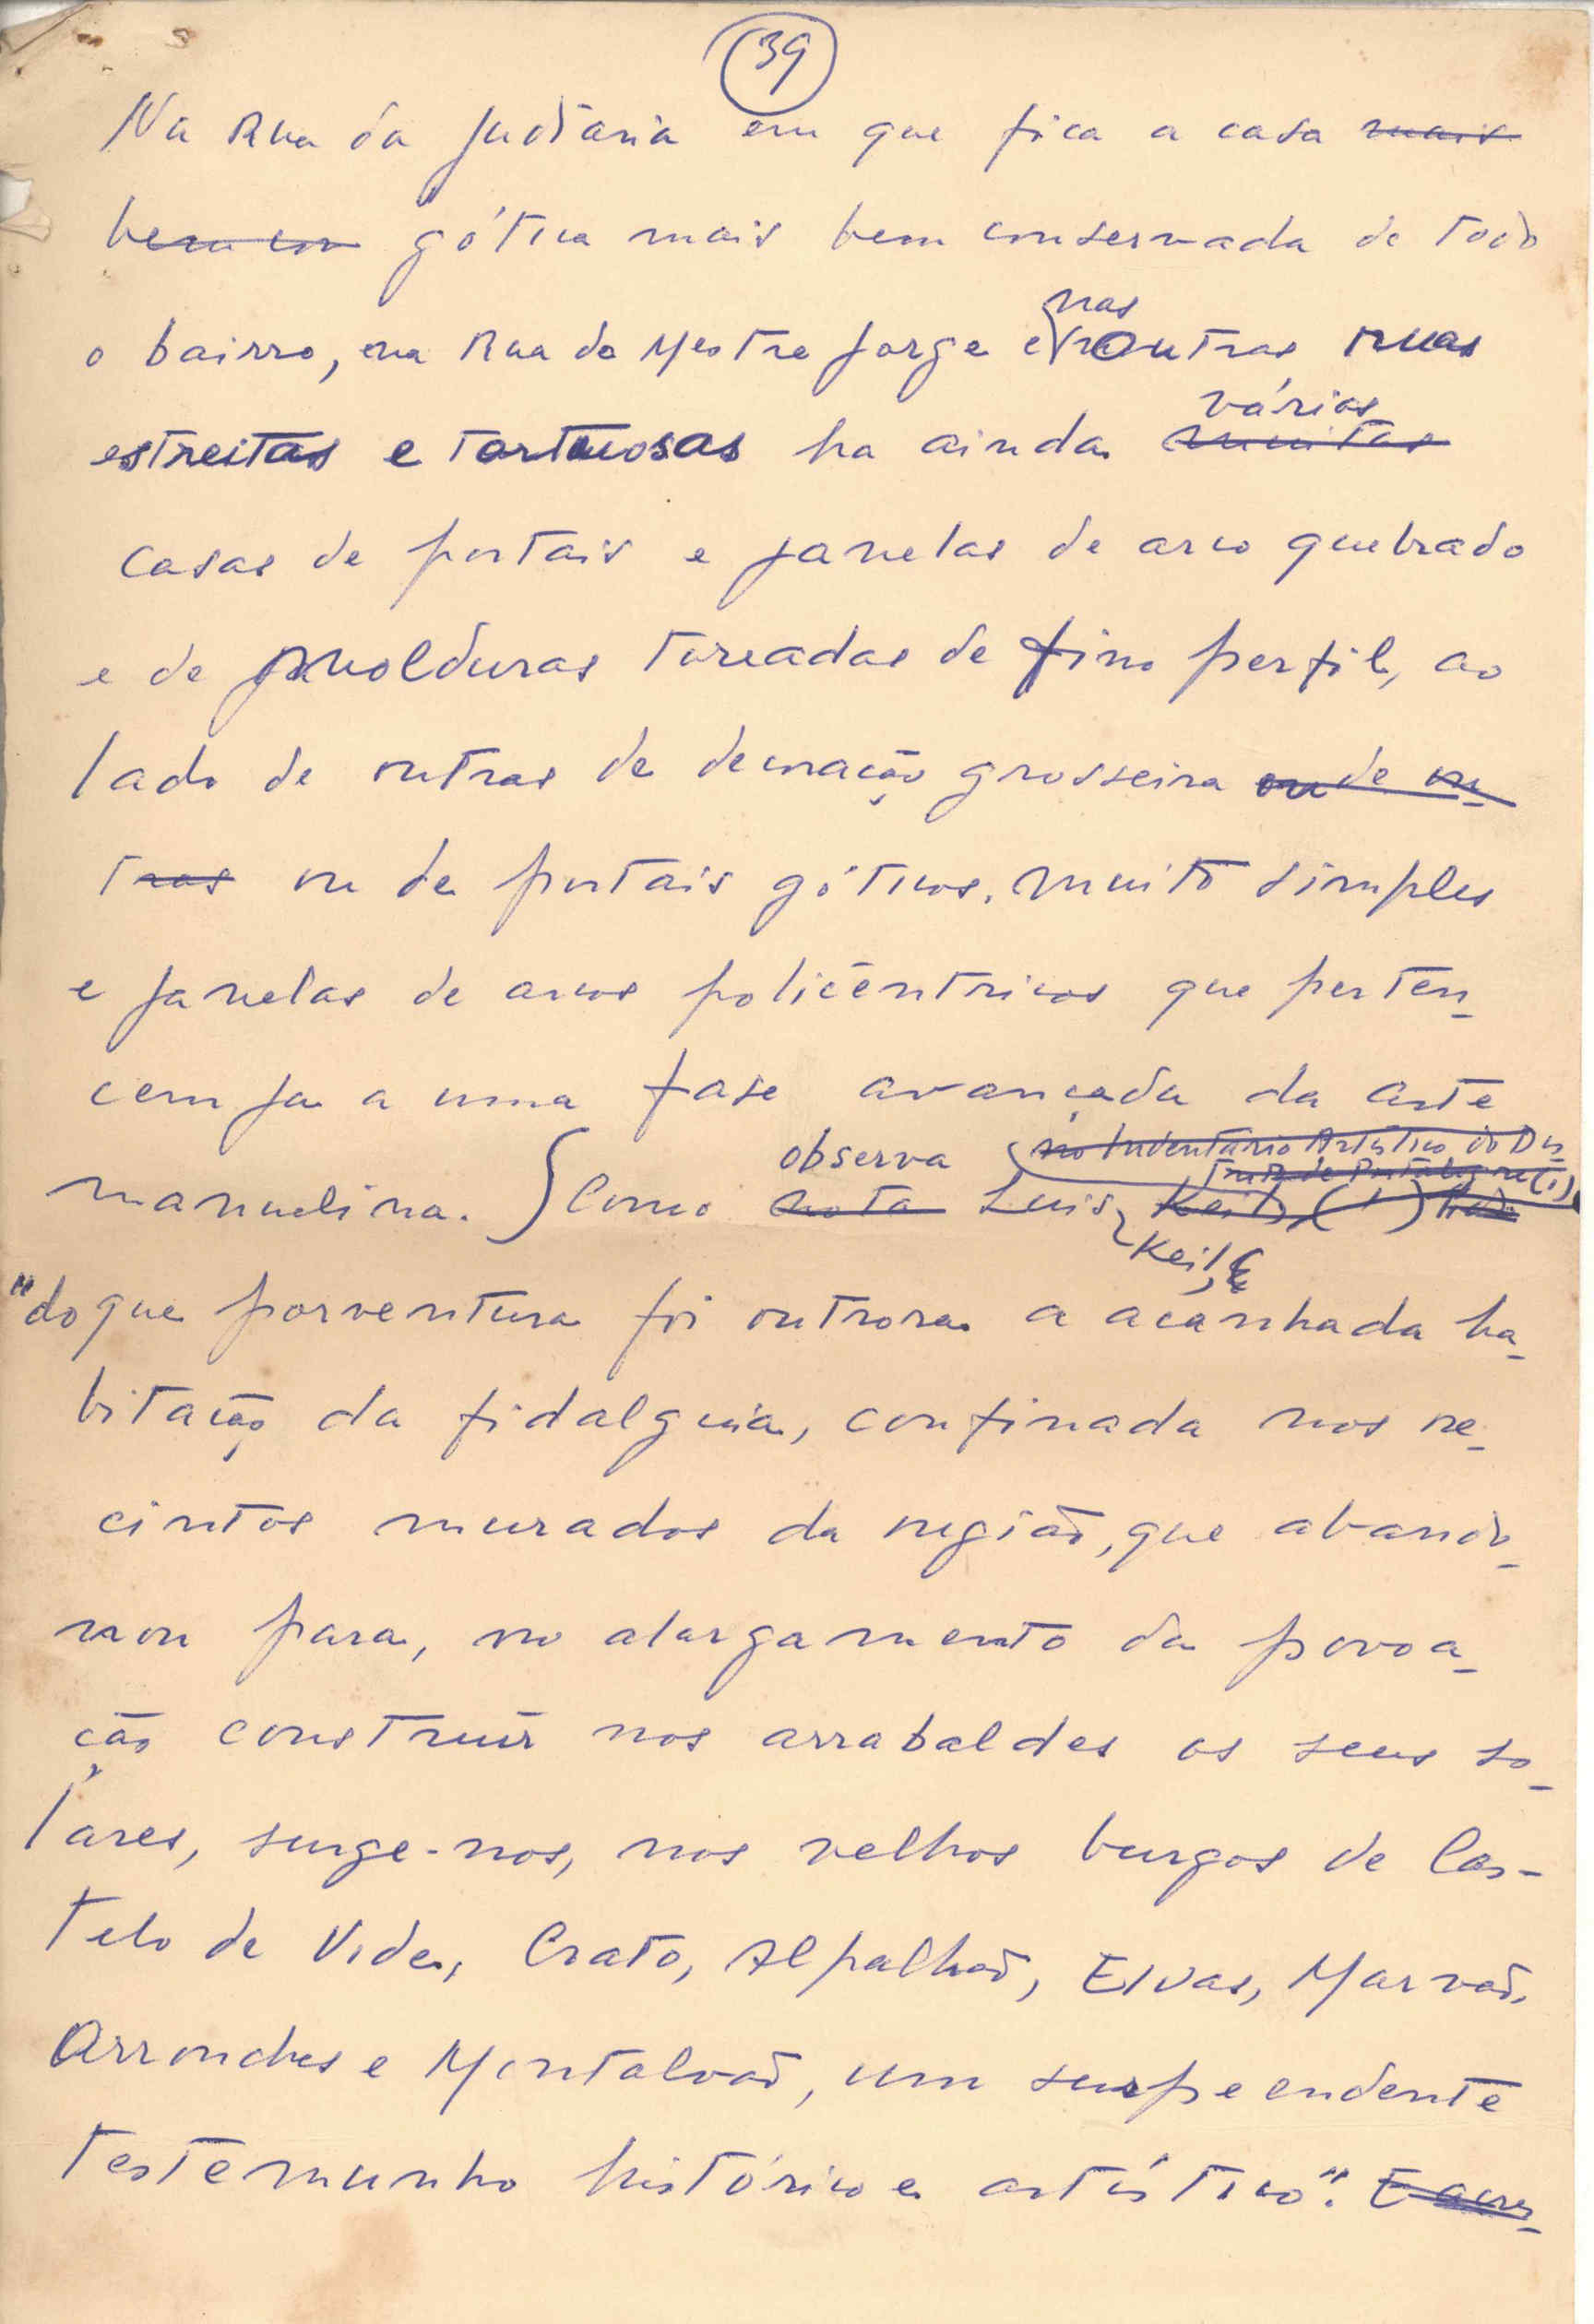 39
Na Rua da Judiaria em que fica a casa mais
bem con gótica mais bem conservada de todo
nas
o bairro, na Rua do Mestre Jorge e outras ruas
várias
estreitas e tortuosas ha ainda muitas
casas de portais e janelas de arco quebrado
e de molduras toreadas de fino perfil, ao
lado de outras de decoração grosseira ou de ou-
tras ou de portais góticos, muito simples
e janelas de arcos policêntricos que perten-
cem ja a uma fase avançada da arte
observa no Inventário Artístico do Dis
trito de Portalegre (1)
manuelina. Como nota Luis Keil, (1)
Keil,
"do que porventura foi outrora a acanhada ha-
bitação da fidalguia, confinada nos re-
cintos murados da região, que abando-
nou para, no alargamento da povoa-
ção construir nos arrabaldes os seus so-
lares, surge-nos, nos velhos burgos de Cas-
telo de Vide, Crato, Alpalhão, Elvas, Marvão,
Arronches e Montalvão, um surpeendente
testemunho histórico e artístico". E acres-